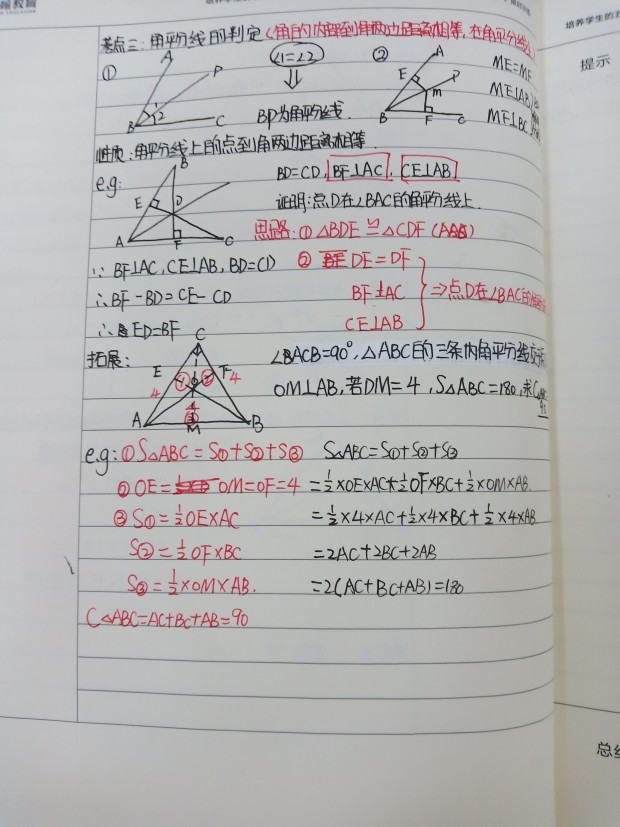 培养学生的
提示
考点三:角平分线的判定(角的内部到角两边距离相等,在角平分线上)
① A P B C 1 2
∠1=∠2
⇓
BP为角平分线.
② A E P M B F C
ME=MF
ME⊥AB
MF⊥BC
性质:角平分线上的点到角两边距离相等.
e.g: B E D A F C
BD=CD, BF⊥AC, CE⊥AB
证明:点D在∠BAC的角平分线上.
思路:① △BDE≌△CDF (AAS)
∵ BF⊥AC, CE⊥AB, BD=CD
② DE=DF
∴BF-BD=CE-CD
BF⊥AC
⇒点D在∠BAC的
∴ED=BF
CE⊥AB
拓展: C E F O A M B ① ② ③ 4 4 4
∠BACB=90°,△ABC的三条内角平分线交于
OM⊥AB,若DM=4,S△ABC=180,求C
e.g:①S△ABC=S①+S②+S③
S△ABC=S①+S②+S③
②OE=OM=OF=4
=½×OE×AC+½OF×BC+½×OM×AB.
③S①=½OE×AC
=½×4×AC+½×4×BC+½×4×AB
S②=½OF×BC
=2AC+2BC+2AB
S③=½×OM×AB.
=2(AC+BC+AB)=180
C△ABC=AC+BC+AB=90
总结